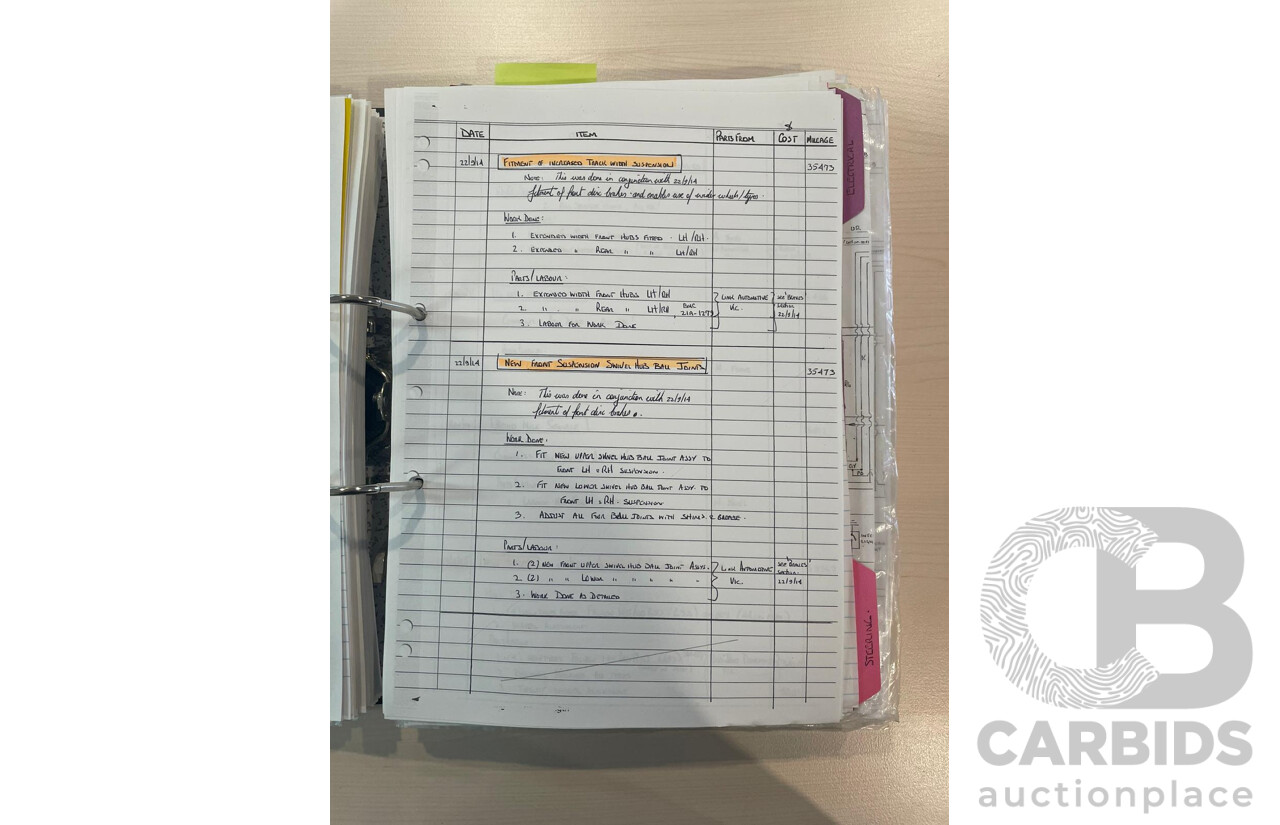 DATE ITEM PARTS FROM $ COST MILEAGE
22/9/14 FITMENT OF INCREASED TRACK WIDTH SUSPENSION 35473
NOTE: This was done in conjunction with 22/9/14
fitment of front disc brakes and enables use of wider wheels/tyres.
WORK DONE:
1. EXTENDED WIDTH FRONT HUBS FITTED - LH/RH.
2. EXTENDED " REAR " " LH/RH
PARTS/LABOUR:
1. EXTENDED WIDTH FRONT HUBS LH/RH LINK AUTOMOTIVE SEE 'BRAKES'
2. " " REAR " LH/RH, BMC 21A-1273 VIC. SECTION
3. LABOUR FOR WORK DONE 22/9/14
22/9/14 NEW FRONT SUSPENSION SWIVEL HUB BALL JOINTS 35473
NOTE: This was done in conjunction with 22/9/14
fitment of front disc brakes.
WORK DONE:
1. FIT NEW UPPER SWIVEL HUB BALL JOINT ASSY TO
FRONT LH & RH SUSPENSION.
2. FIT NEW LOWER SWIVEL HUB BALL JOINT ASSY TO
FRONT LH & RH. SUSPENSION
3. ADJUST ALL FOUR BALL JOINTS WITH SHIMS. & GREASE.
PARTS/LABOUR:
1. (2) NEW FRONT UPPER SWIVEL HUB BALL JOINT ASSYS. LINK AUTOMOTIVE SEE 'BRAKES'
2. (2) " " LOWER " " " " " VIC. SECTION
22/9/14
3. WORK DONE AS DETAILED
ELECTRICAL
STEERING.
CARBIDS
auctionplace